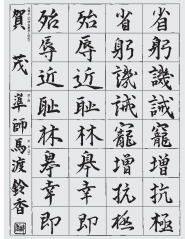 省躬譏誡寵增抗極
省躬譏誡寵增抗極
殆辱近耻林皐幸即
殆辱近耻林皐幸即
賀茂 準師 馬渡鈴香